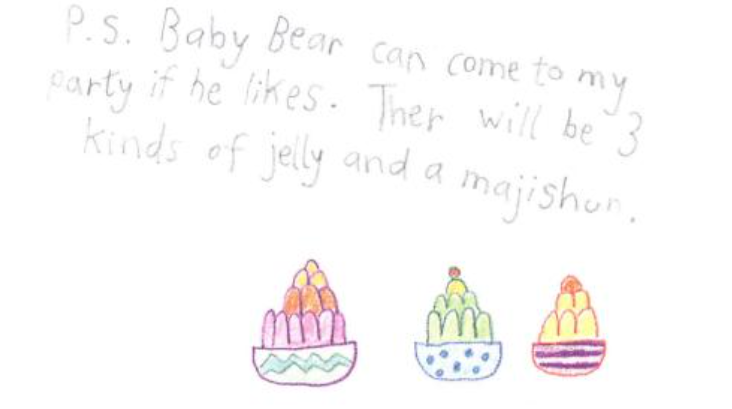 P.S. Baby Bear can come to my
party if he likes. Ther will be 3
kinds of jelly and a majishun.